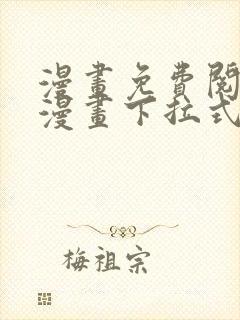 漫畫免費閱
漫畫下拉式
梅祖宗